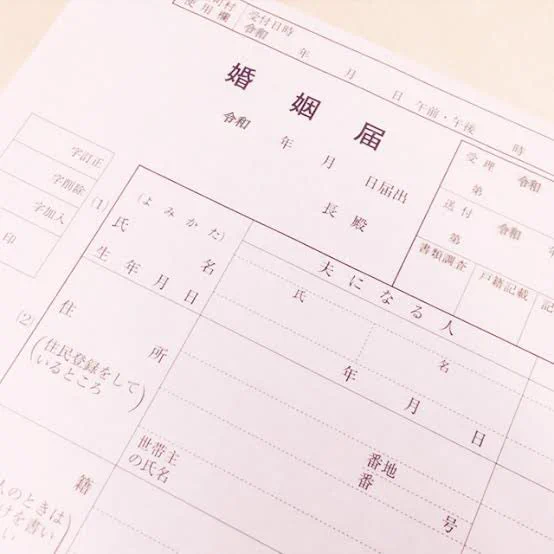 町村
使用欄
受付日時
令和　年　月　日　午前・午後　時
婚姻届
令和　年　月　日届出
長　殿
受理　令和
第
送付　令和
第
書類調査　戸籍記載　記
字訂正
字削除
字加入
印
(1)
(よみかた)
氏　名
生年月日
夫になる人
氏　名
年　月　日
(2)
住　所
(住民登録をして
いるところ)
番地
番　号
世帯主
の氏名
籍
人のときは
けを書い
い